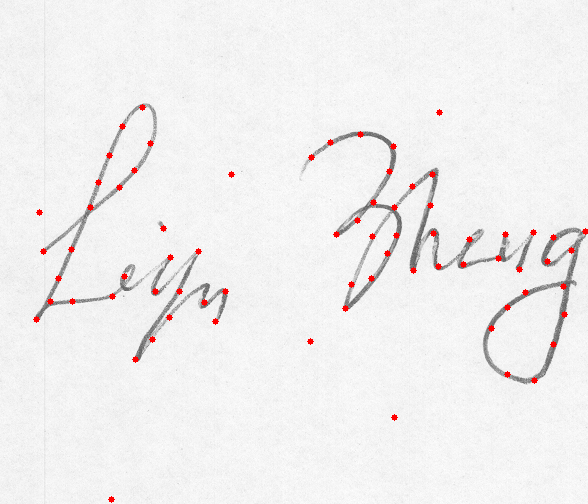 Leijn Zheng